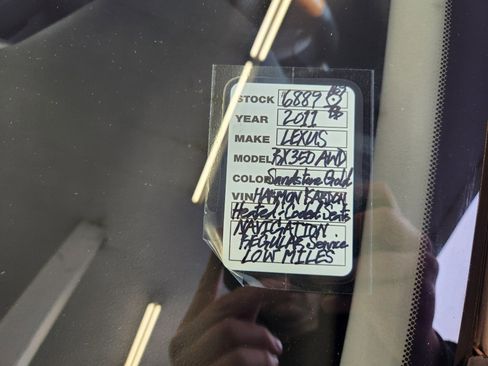 STOCK 6889
YEAR 2011
MAKE LEXUS
MODEL RX350 AWD
COLOR Sandstone Gold
VIN HARMON KARDON
Heated-Cooled Seats
NAVIGATION.
REGULAR Service
LOW MILES